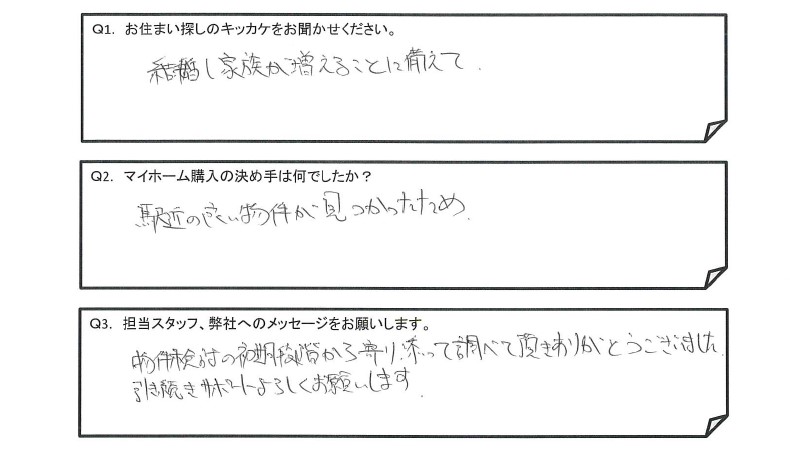 Q1. お住まい探しのキッカケをお聞かせください。
結婚し家族が増えることに備えて.
Q2. マイホーム購入の決め手は何でしたか？
駅近の良い物件が見つかったため.
Q3. 担当スタッフ、弊社へのメッセージをお願いします。
物件検討の初期段階から寄り添って調べて頂きありがとうございました.
引き続きサポートよろしくお願いします.